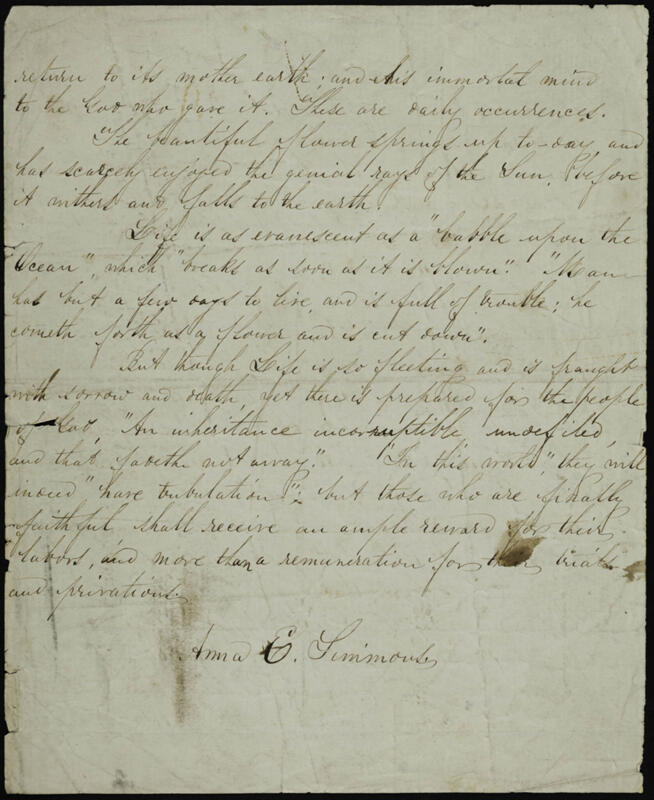 return to its mother earth; and this immortal mind
to the God who gave it. These are daily occurrences.
The beautiful flower springs up to-day, and
has scarcely enjoyed the genial rays of the Sun, before
it withers and falls to the earth.
Life is as evanescent as a "bubble upon the
Ocean", which "breaks as soon as it is blown". "Man
has but a few days to live, and is full of trouble; he
cometh forth as a flower and is cut down".
But though Life is so fleeting and is fraught
with sorrow and death, yet there is prepared for the people
of God, "An inheritance incorruptible, undefiled,
and that fadeth not away". "In this world," they will
indeed "have tribulation"; but those who are finally
faithful shall receive an ample reward for their
labors, and more than a remuneration for their trials
and privations.
Anna E. Simmons